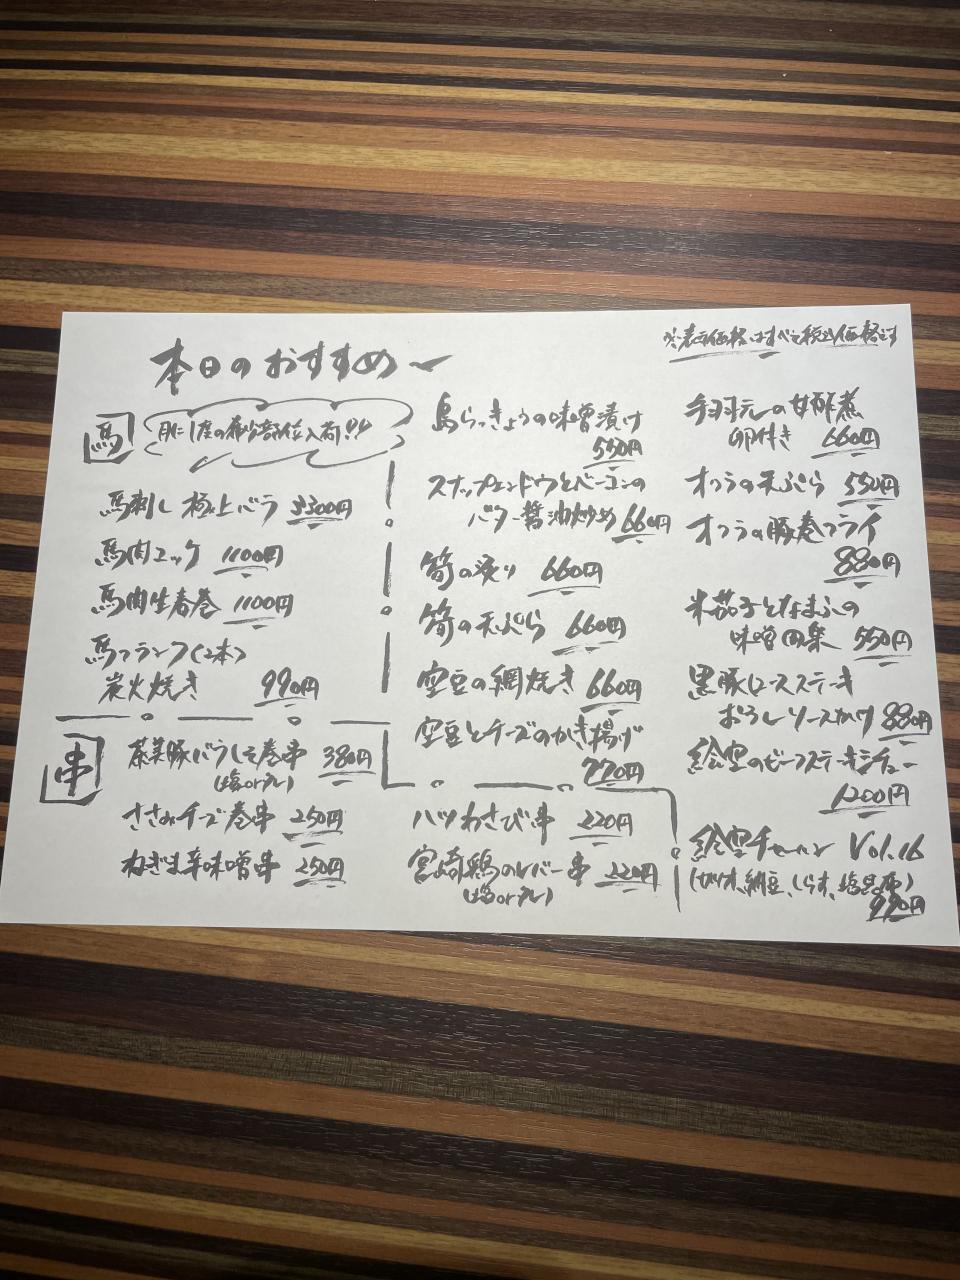 本日のおすすめ〜
※表示価格はすべて税込価格です
馬
月に1度の希少部位入荷!!
馬刺し 極上バラ 3300円
馬肉ユッケ 1100円
馬肉生春巻 1100円
馬フランク(2本)
炭火焼き 990円
串
茶美豚バラしそ巻串 380円
(塩orタレ)
ささみチーズ巻串 250円
ねぎま辛味噌串 250円
島らっきょうの味噌漬け
550円
スナップエンドウとベーコンの
バター醤油炒め 660円
筍の炙り 660円
筍の天ぷら 660円
空豆の網焼き 660円
空豆とチーズのかき揚げ
770円
ハツわさび串 220円
宮崎鶏のレバー串 220円
(塩orタレ)
手羽元の甘酢煮
卵付き 660円
オクラの天ぷら 550円
オクラの豚巻フライ
880円
米茄子となまふの
味噌田楽 550円
黒豚ロースステーキ
おろしソースがけ 880円
絵空のビーフステーキシチュー
1200円
絵空チャーハン Vol.16
(ザーサイ、納豆、しらす、塩昆布)
990円